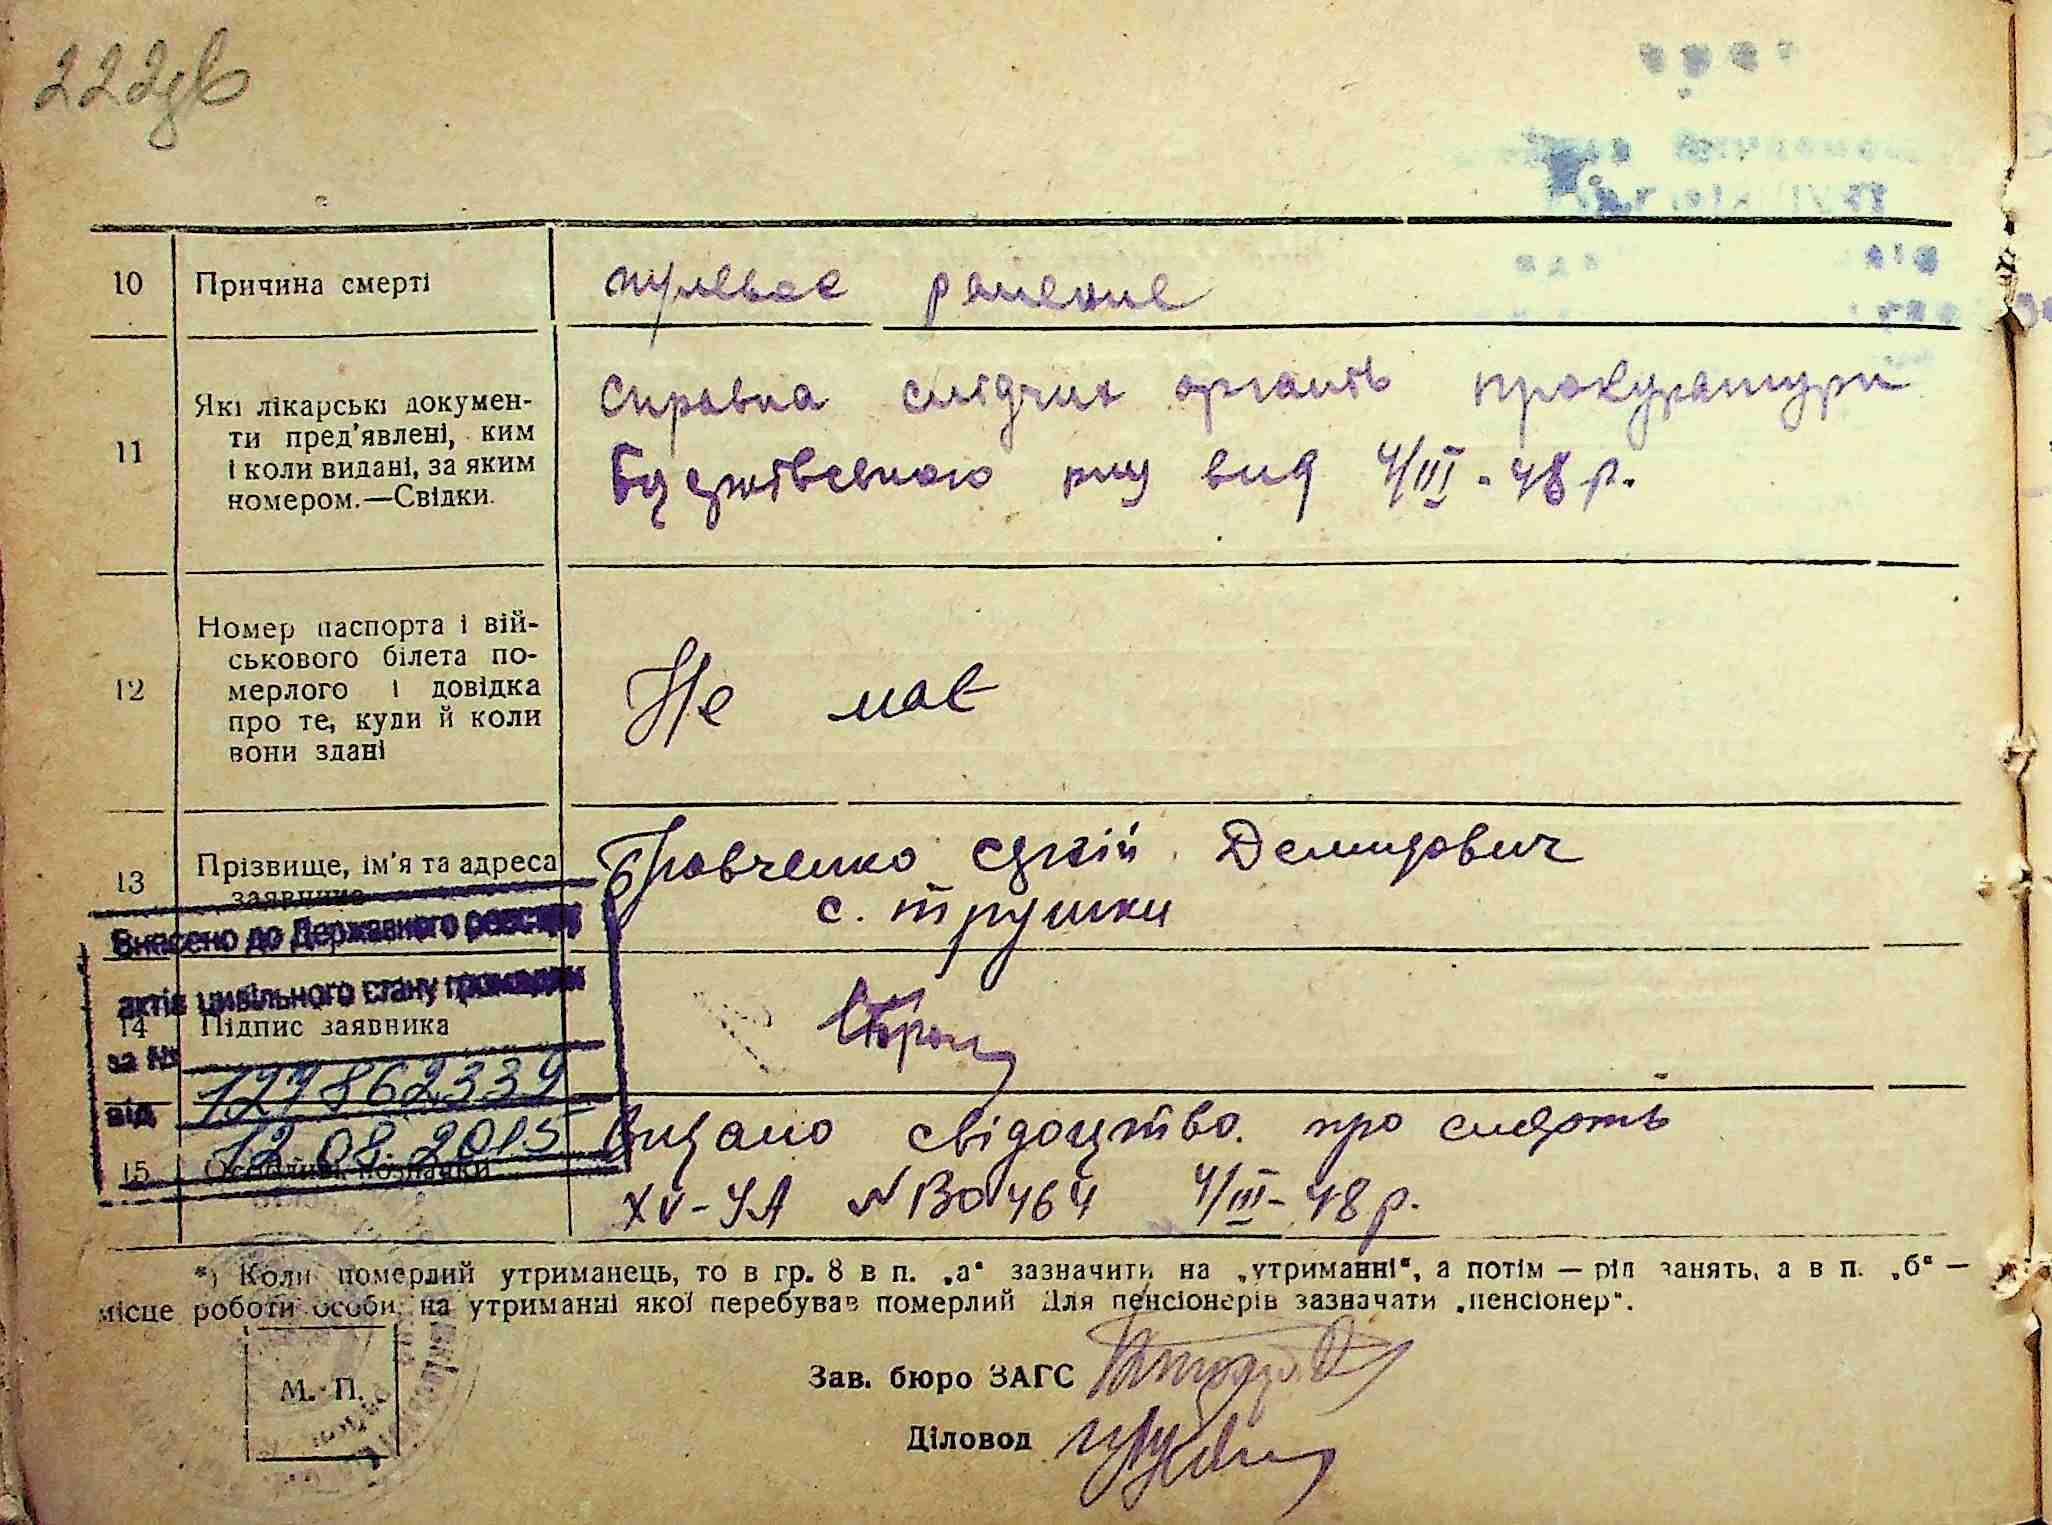 222зв
10 Причина смерті пулевое ранение
11 Які лікарські докумен-
ти пред'явлені, ким
і коли видані, за яким
номером.—Свідки.
Справка слідчих органів прокуратури
вид 4/III-48 р.
12 Номер паспорта і вій-
ськового білета по-
мерлого і довідка
про те, куди й коли
вони здані
Не має
13 Прізвище, ім'я та адреса
заявника
Кравченко Сергій Демидович
с. Трушки
Внесено до Державного реєстру
актів цивільного стану громадян
14 Підпис заявника
за №
127862339
від
12.08.2015
15 Особливі позначки
Видано свідоцтво про смерть
XV-УА № 130464 4/III-48 р.
*) Коли померлий утриманець, то в гр. 8 в п. „а“ зазначити на „утриманні“, а потім — рід занять, а в п. „б“ —
місце роботи особи, на утриманні якої перебував померлий Для пенсіонерів зазначати „пенсіонер“.
М. П.
Зав. бюро ЗАГС
Діловод